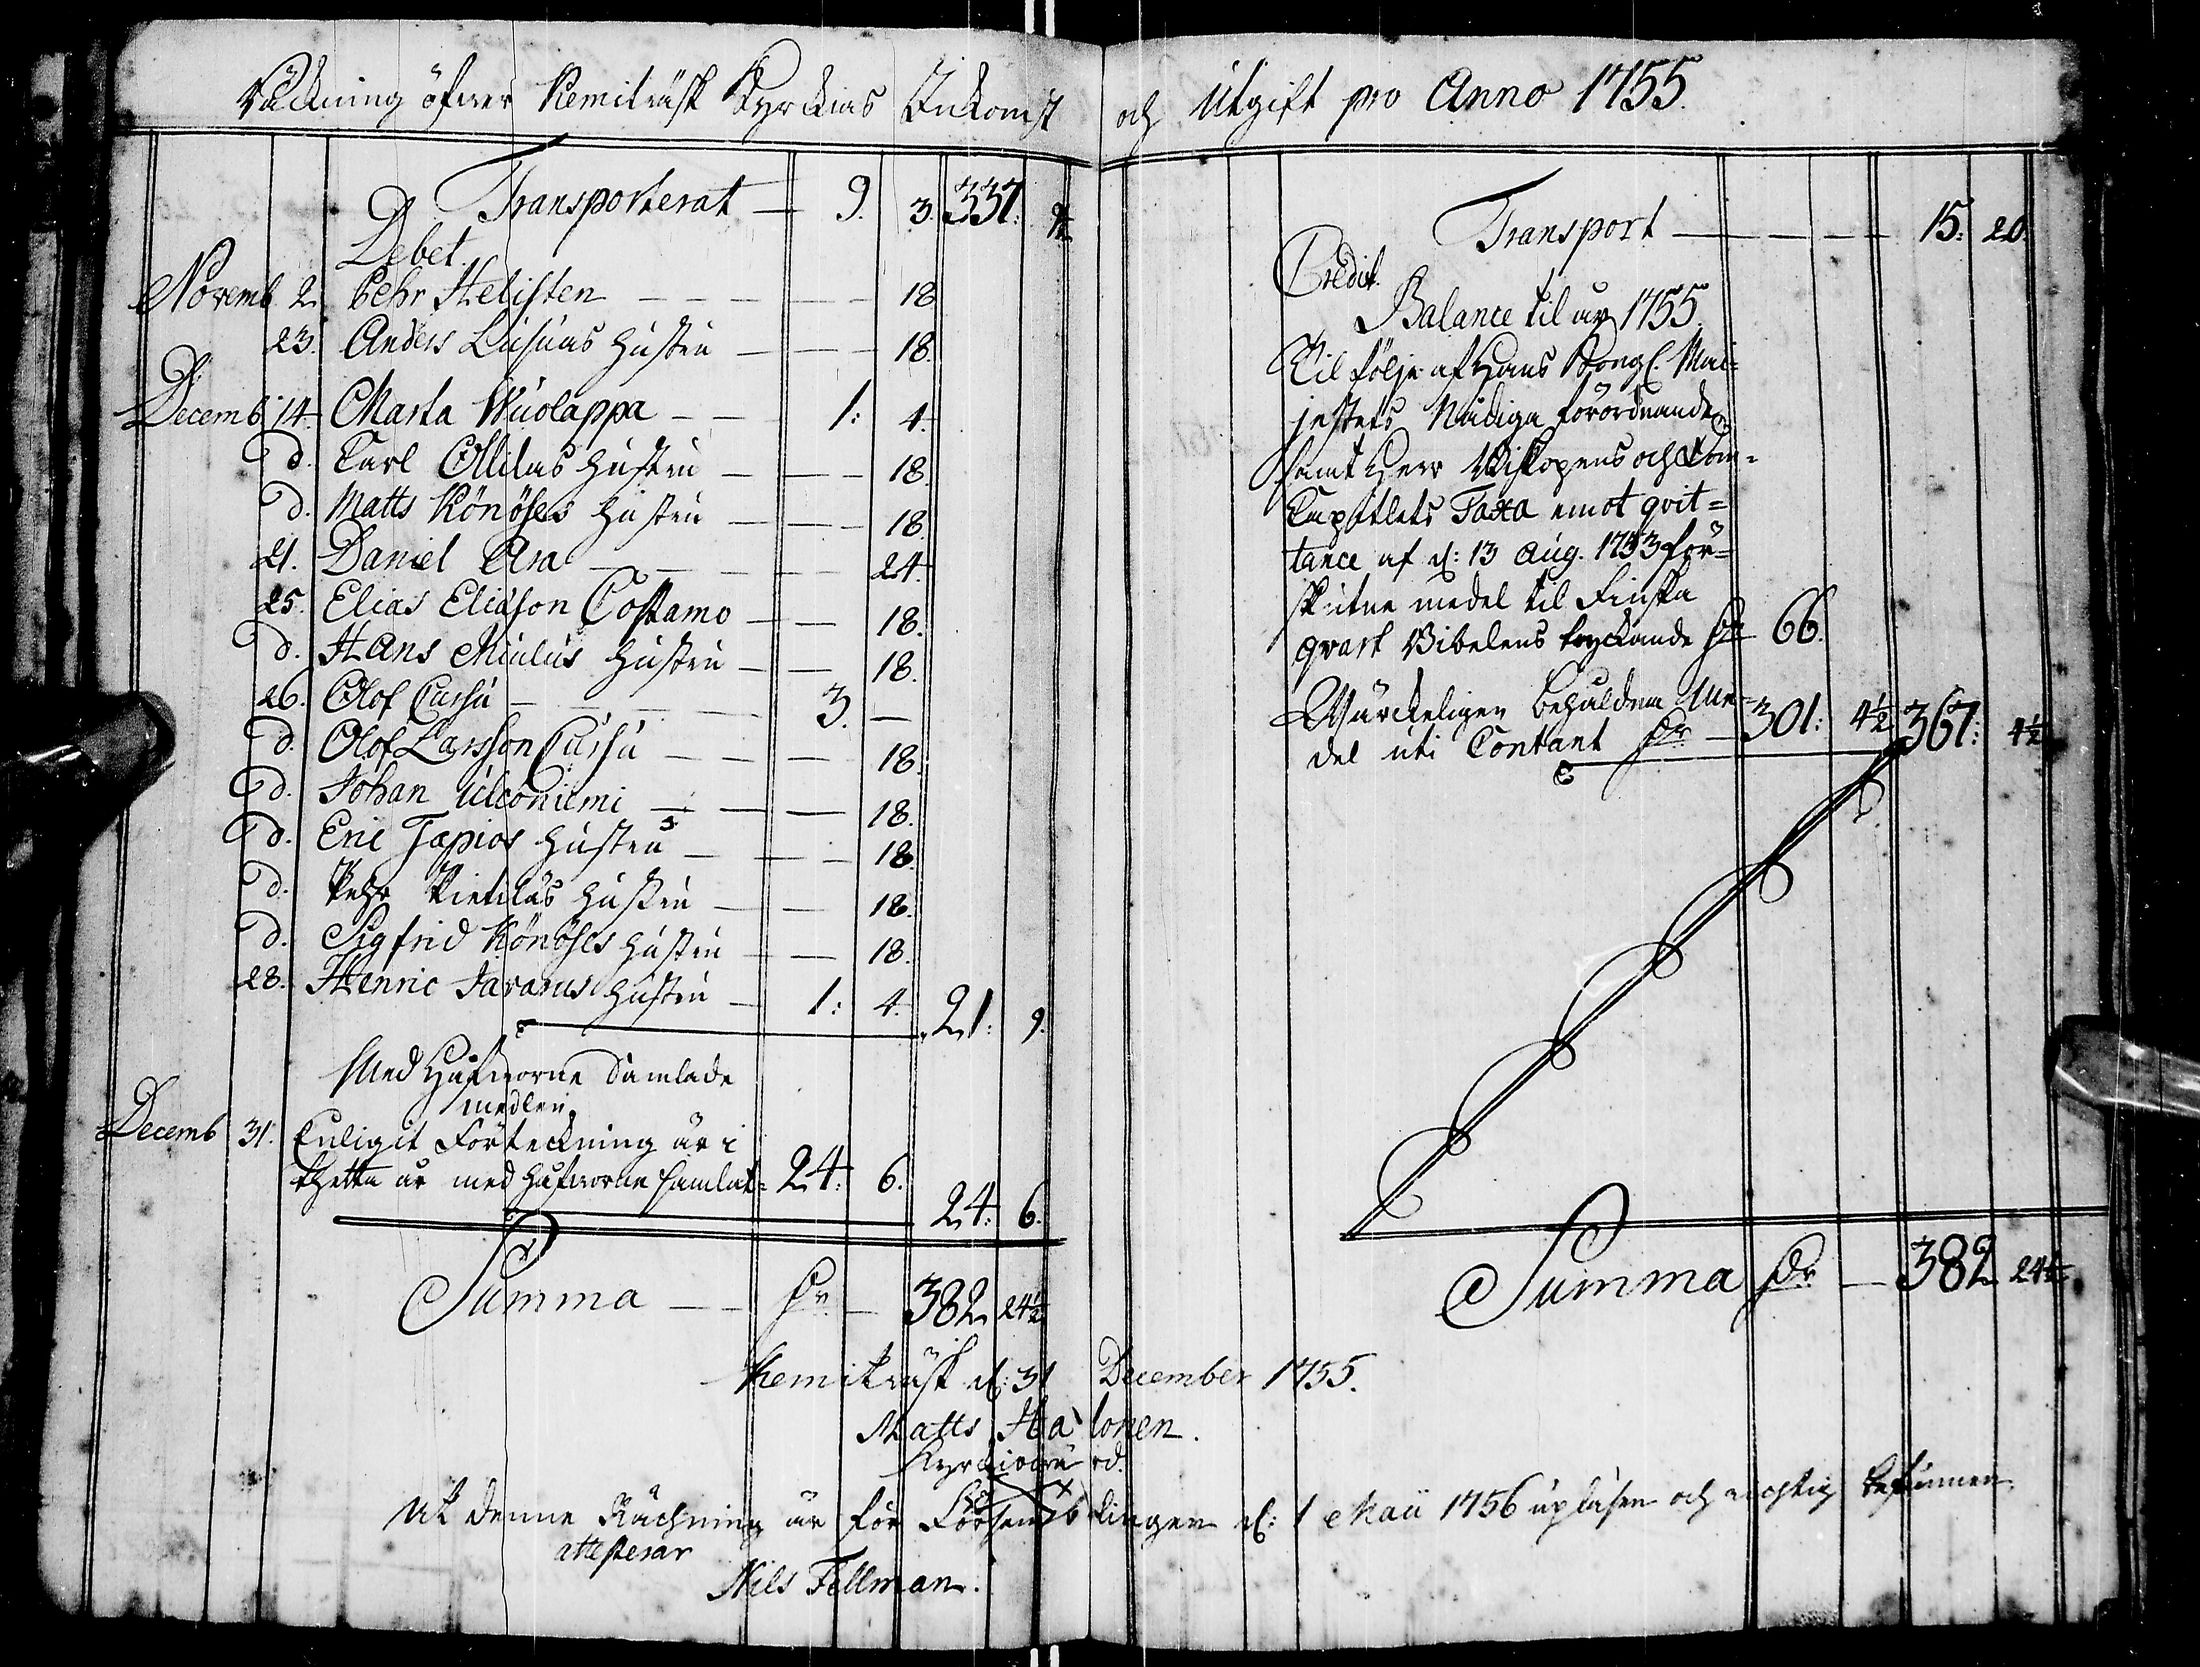 Räckning öfwer Kemiträsk Kyrckias Inkomst och Utgift pro Anno 1755.
Transporterat — 9. 3. 337. 9½
Debet.
Novemb 2. Pehr Helisten — — — — 18
23. Anders Lusuas Hustru — — — 18.
Decemb 14. Marta Wuolappa — — 1: 4.
d. Carl Ollilas Hustru — — — 18.
d. Matts Könöses Hustru — — — 18.
21. Daniel Ara — — — — 24.
25. Elias Eliæson Costamo — — 18.
d. Hans Mulus Hustru — — 18.
26. Olof Cursu — — — — 3. —
d. Olof Larsson Cursu — — — 18.
d. Johan Ulconiemi — — — 18.
d. Eric Tapios Hustru — — — 18.
d. Pehr Pietilas Hustru — — 18.
d. Sigfrid Könöses Hustru — — 18.
28. Henric Javarus Hustru — 1: 4. 21: 9.
Med Håfworne Samlade
medlen.
Decemb 31. Enligit Förteckning är i
thetta år med Håfworne samlat= 24: 6. 24: 6.
Summa — — Dr — 382 24½
Transport — — — — 15: 20.
Credit.
Balance til år 1755.
Til följe af Hans Kongl. Mai=
jestets Nådiga förordnande
samt Herr Biskopens och Dom=
Capitlets Taxa emot qvit=
tance af d: 13 Aug. 1753 för=
skutne medel til Finska
qvart Bibelens tryckande Dr 66.
Wärckeligen behåldna Me= 301: 4½ 367: 4½
del uti Contant Dr —
Summa Dr — 382 24½
Kemiträsk d: 31 December 1755.
Matts Halonen.
Kyrckiowärd.
At denne Räckning är för Församblingen d: 1 Maii 1756 upläsen och richtig befunnen,
attesterar
Nils Fellman.